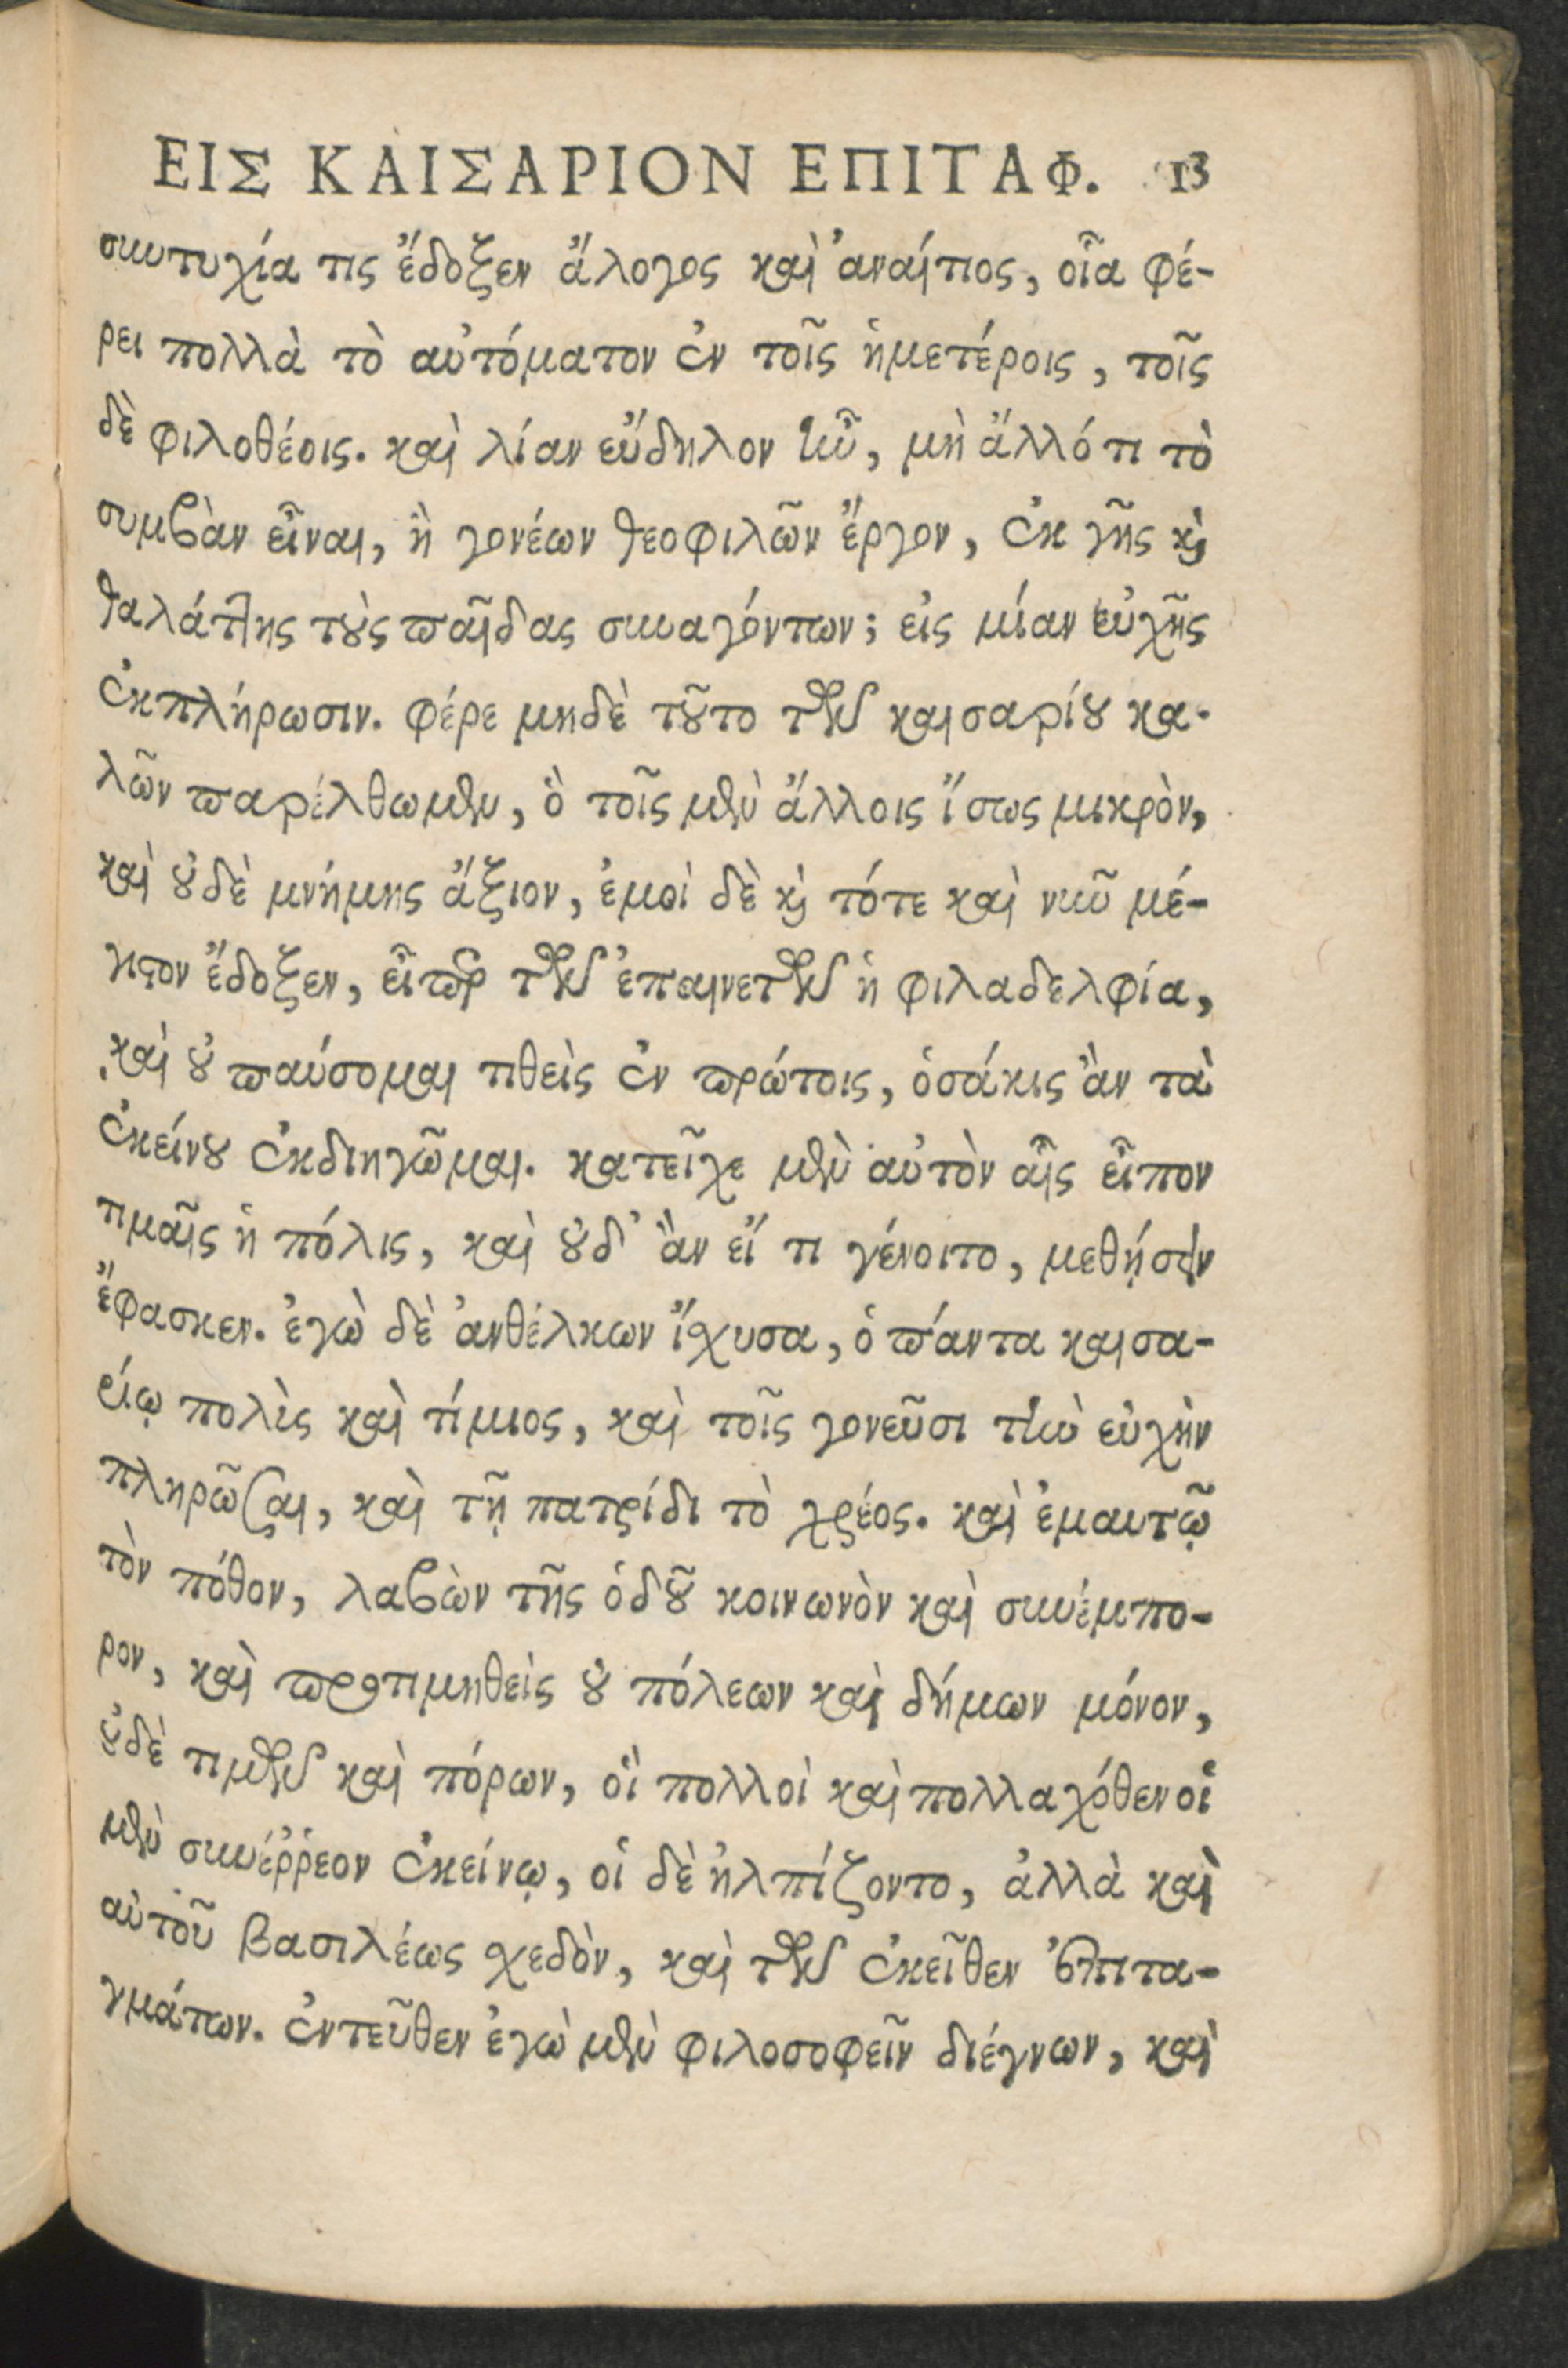 ΕΙΣ ΚΑΙΣΑΡΙΟΝ ΕΠΙΤΑΦ. 13
συντυχία τις ἔδοξεν ἄλογος καὶ ἀναίτιος, οἷα φέ-
ρει πολλὰ τὸ αὐτόματον ἐν τοῖς ἡμετέροις, τοῖς
δὲ φιλοθέοις. καὶ λίαν εὔδηλον ἦν, μὴ ἄλλό τι τὸ
συμβὰν εἶναι, ἢ γονέων θεοφιλῶν ἔργον, ἐκ γῆς καὶ
θαλάττης τοὺς παῖδας συναγόντων; εἰς μίαν εὐχῆς
ἐκπλήρωσιν. φέρε μηδὲ τοῦτο τῶν καισαρίου κα-
λῶν παρέλθωμεν, ὃ τοῖς μὲν ἄλλοις ἴσως μικρὸν,
καὶ οὐδὲ μνήμης ἄξιον, ἐμοὶ δὲ καὶ τότε καὶ νῦν μέ-
γιστον ἔδοξεν, εἴπερ τῶν ἐπαινετῶν ἡ φιλαδελφία,
καὶ οὐ παύσομαι τιθεὶς ἐν πρώτοις, ὁσάκις ἂν τὰ
ἐκείνου ἐκδιηγῶμαι. κατεῖχε μὲν αὐτὸν αἷς εἶπον
τιμαῖς ἡ πόλις, καὶ οὐδ' ἂν εἴ τι γένοιτο, μεθήσειν
ἔφασκεν. ἐγὼ δὲ ἀνθέλκων ἴσχυσα, ὁ πάντα καισα-
ρίῳ πολὺς καὶ τίμιος, καὶ τοῖς γονεῦσι τὴν εὐχὴν
πληρῶσαι, καὶ τῇ πατρίδι τὸ χρέος. καὶ ἐμαυτῷ
τὸν πόθον, λαβὼν τῆς ὁδοῦ κοινωνὸν καὶ συνέμπο-
ρον, καὶ προτιμηθεὶς οὐ πόλεων καὶ δήμων μόνον,
οὐδὲ τιμῶν καὶ πόρων, οἳ πολλοὶ καὶ πολλαχόθεν οἱ
μὲν συνέῤῥεον ἐκείνῳ, οἱ δὲ ἠλπίζοντο, ἀλλὰ καὶ
αὐτοῦ βασιλέως σχεδὸν, καὶ τῶν ἐκεῖθεν ἐπιτα-
γμάτων. ἐντεῦθεν ἐγὼ μὲν φιλοσοφεῖν διέγνων, καὶ